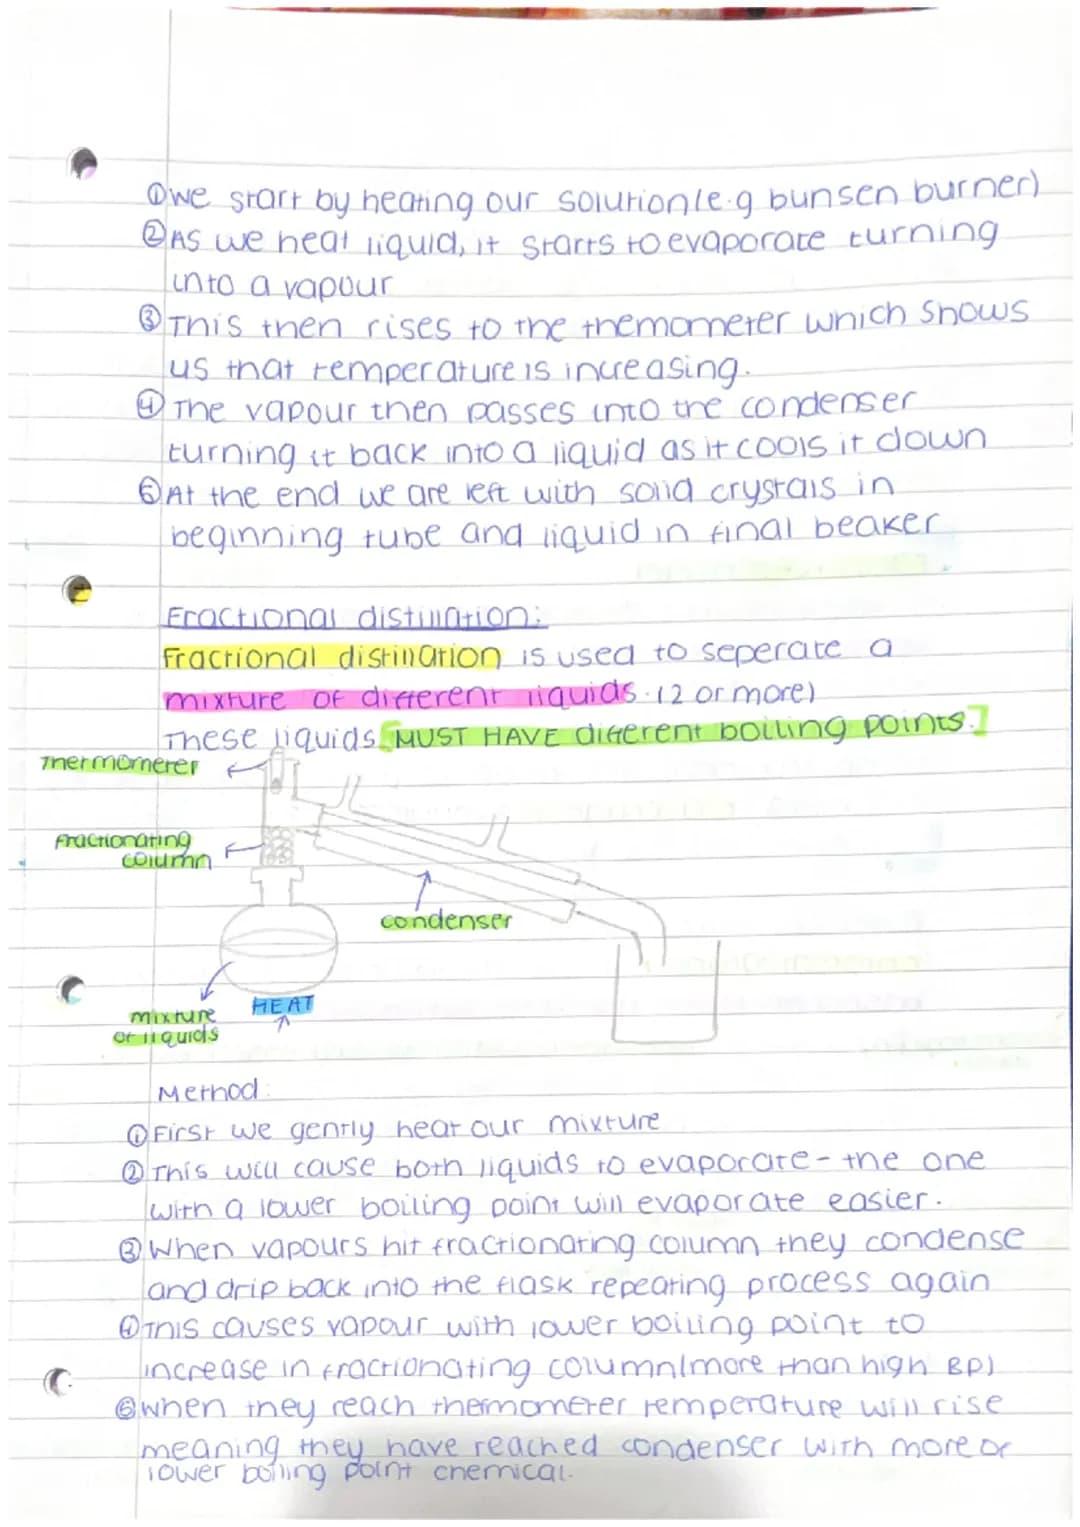 ① we start by heating our solution(e.g bunsen burner)
② As we heat liquid, it starts to evaporate turning
into a vapour
③ This then rises to the themometer which shows
us that temperature is increasing.
④ The vapour then passes into the condenser
turning it back into a liquid as it cools it down
⑤ At the end we are left with solid crystals in
beginning tube and liquid in final beaker
Fractional distillation:
Fractional distillation is used to seperate a
mixture of different liquids. (2 or more)
These liquids [MUST HAVE different boiling points.]
Thermometer
Fractionating
column
condenser
mixture
of liquids
HEAT
Method:
① First we gently heat our mixture
② This will cause both liquids to evaporate - the one
with a lower boiling point will evaporate easier.
③ When vapours hit fractionating column they condense
and drip back into the flask repeating process again
④ This causes vapour with lower boiling point to
increase in fractionating column(more than high BP)
⑤ when they reach thermometer temperature will rise
meaning they have reached condenser with more of
lower boiling point chemical.